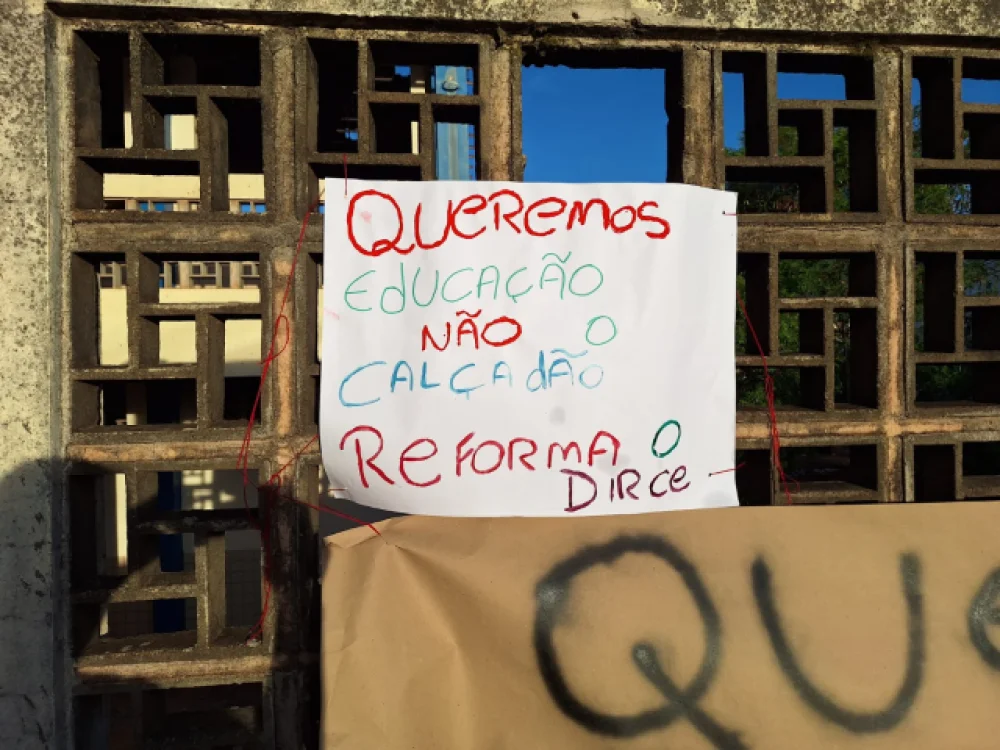 QUEREMOS
EDUCAÇÃO
NÃO O
CALÇADÃO
REFORMA O
DIRCE
QU